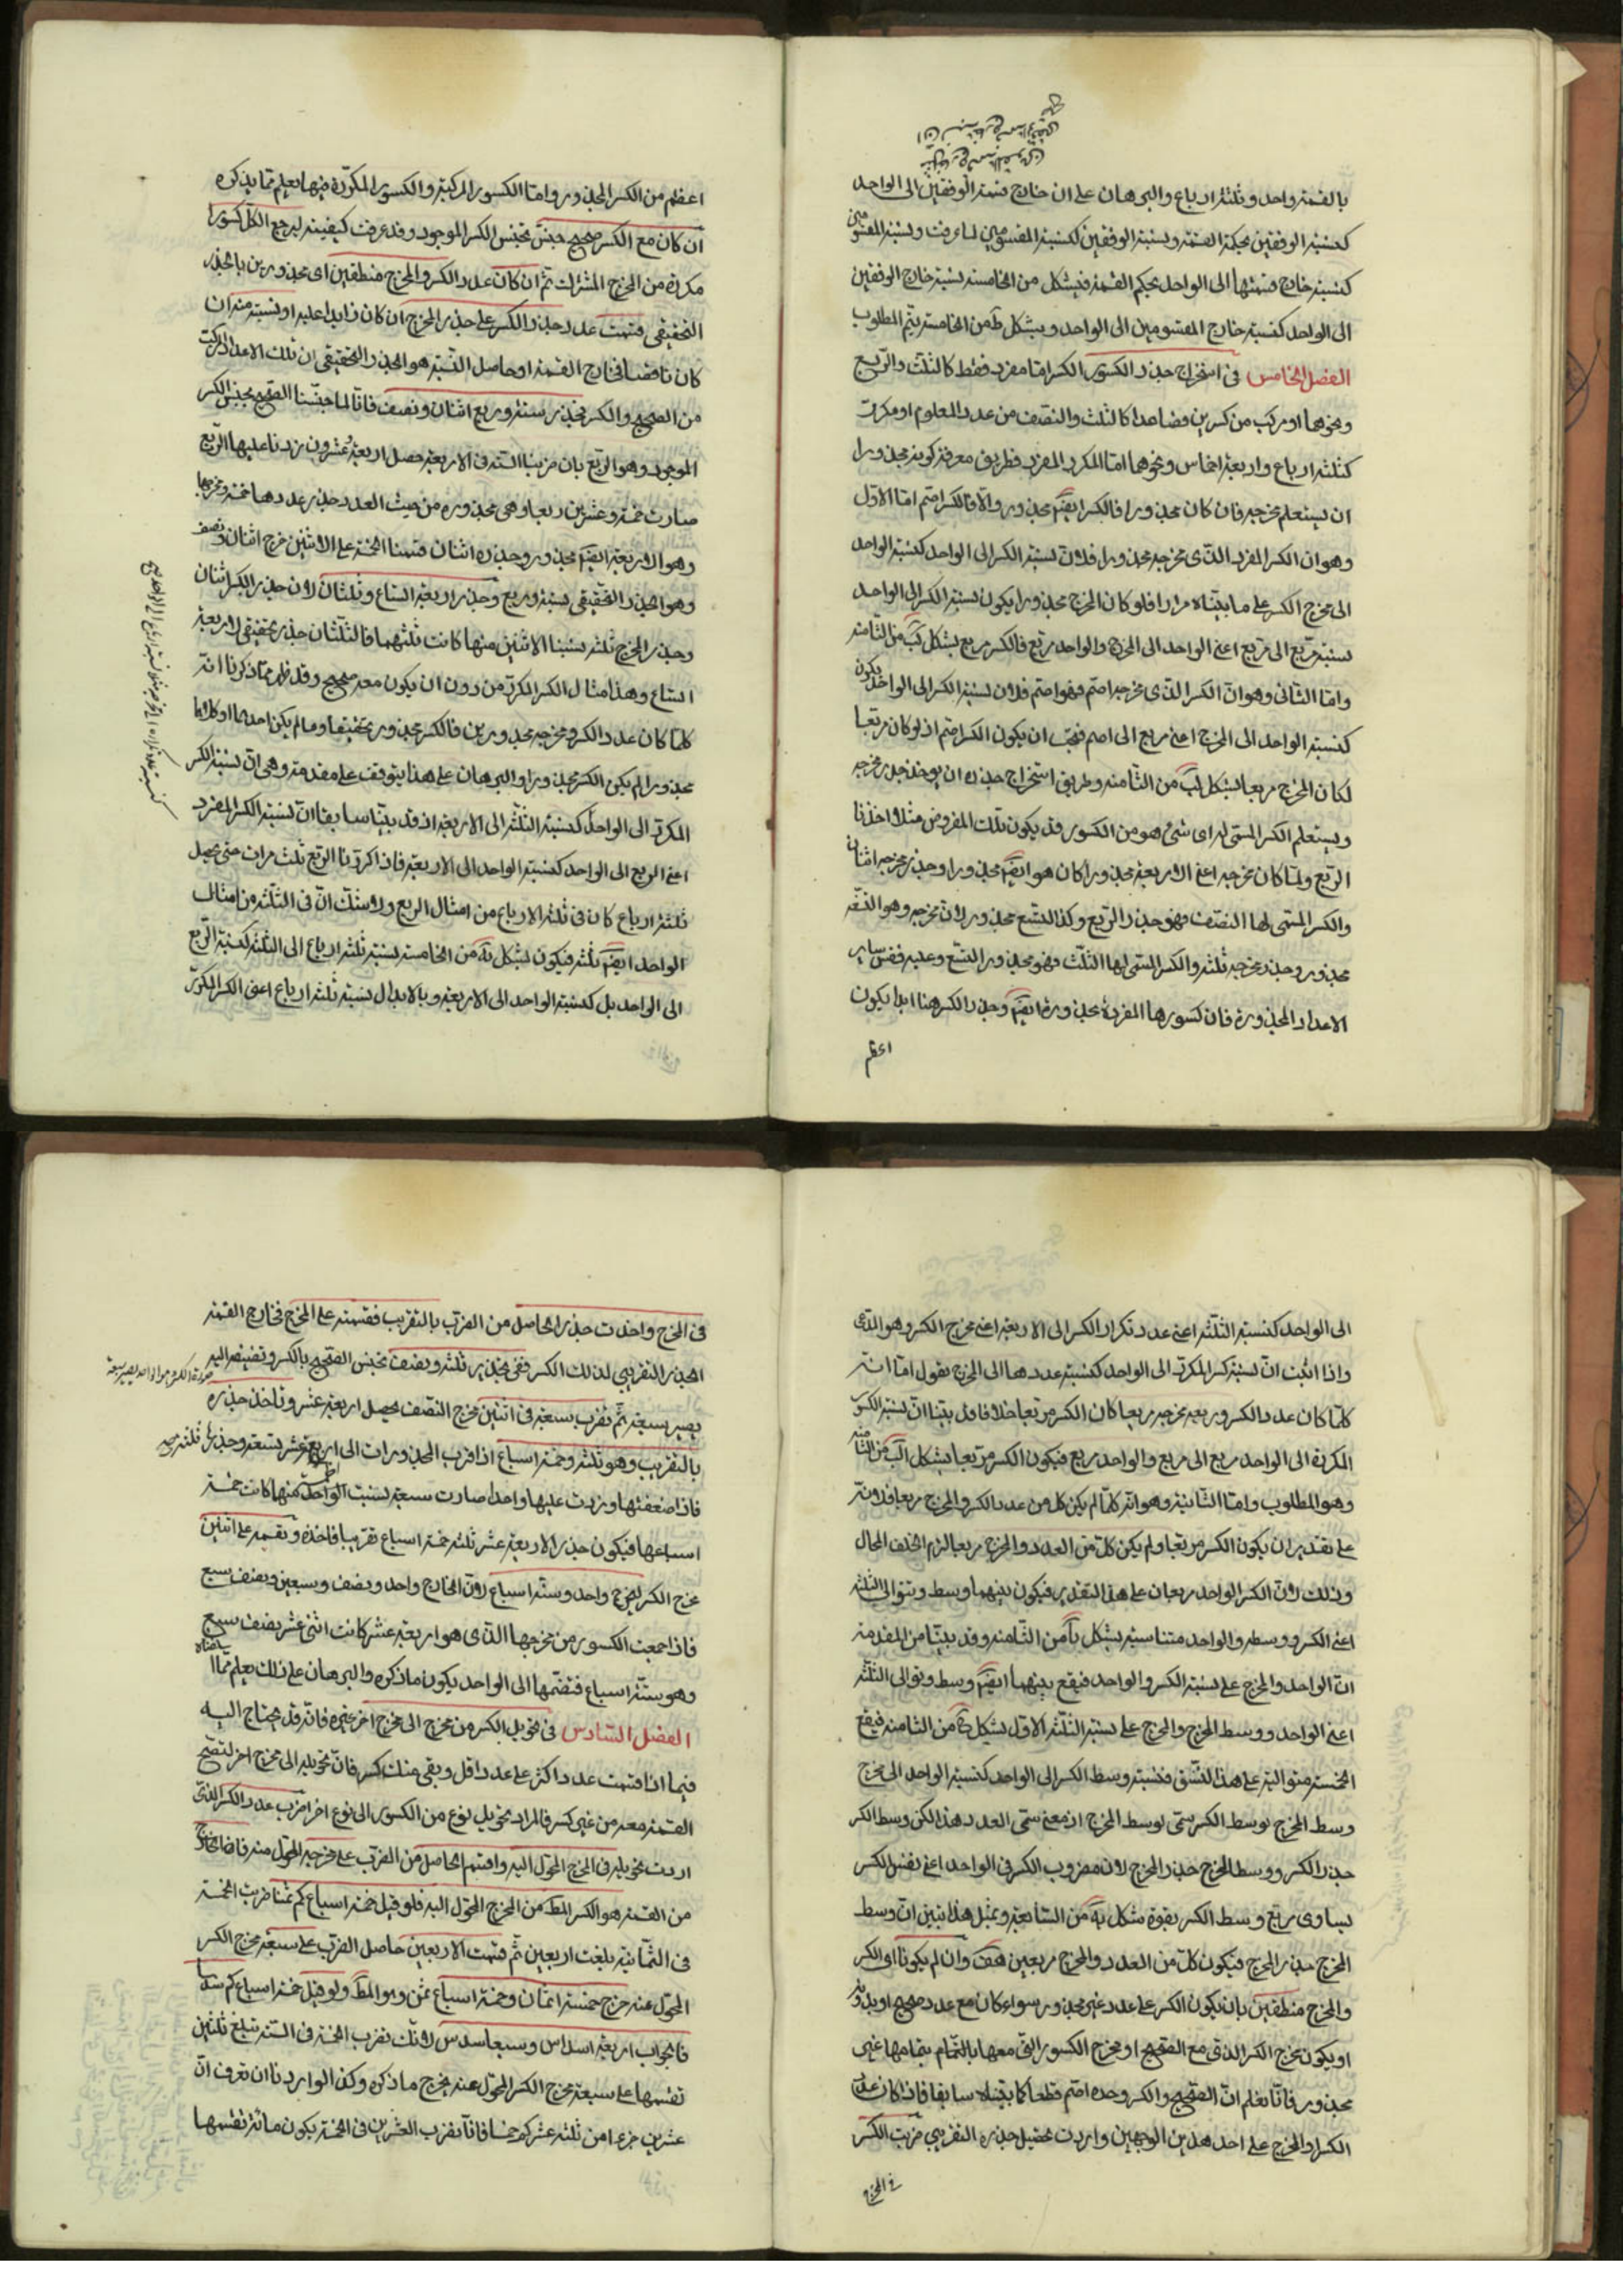 بالقسمة واحد وثلثة ارباع والبرهان على ان خارج قسمة الوفقين الى الواحد
كنسبة الوفقين بحكم القسمة ونسبة الوفقين كنسبة المقسومين لما عرفت ونسبة المقسومين
كنسبة خارج قسمتهما الى الواحد بحكم القسمة فبشكل من الخامسة نسبة خارج الوفقين
الى الواحد كنسبة خارج المقسومين الى الواحد وبشكل ط من الخامسة يتم المطلوب
الفصل الخامس فى استخراج جذر الكسور الكسر اما مفرد فقط كالثلث والربع
ونحوهما او مركب من كسرين فصاعدا كالثلث والنصف من عدد المعلوم او مكرر
كثلثة ارباع واربعة اخماس ونحوها اما المكرر المفرد فطريق معرفة كونه مجذورا
ان يستعلم مخرجه فان كان مجذورا فالكسر ايضا مجذور والا فالكسر اصم اما الاول
وهو ان الكسر المفرد الذى مخرجه مجذورا فلان نسبة الكسر الى الواحد كنسبة الواحد
الى مخرج الكسر على ما بيناه مرارا فلو كان المخرج مجذورا يكون نسبة الكسر الى الواحد
نسبة مربع الى مربع اعنى الواحد الى المخرج والواحد مربع فالكسر مربع بشكل كب من الثامنة
واما الثانى وهو ان الكسر الذى مخرجه اصم فهو اصم فلان نسبة الكسر الى الواحد يكون
كنسبة الواحد الى المخرج اعنى مربع الى اصم فيجب ان يكون الكسر اصم اذ لو كان مربعا
لكان المخرج مربعا بشكل كب من الثامنة وطريق استخراج جذره ان يوخذ جذر مخرجه
ويستعلم الكسر المسمى له اى شئ هو من الكسور قد يكون تلك المفروض مثلا اخذنا
الربع ولما كان مخرجه اعنى الاربعة مجذورا كان هو ايضا مجذورا وجذر مخرجه اثنان
والكسر المسمى لها النصف فهو جذر الربع وكذا التسع مجذور لان مخرجه وهو التسعة
مجذور وجذر مخرجه ثلثة والكسر المسمى لها الثلث فهو مجذور التسع وعليه فقس ساير
الاعداد المجذورة فان كسورها المفردة مجذورة ايضا وجذر الكسر هنا ابدا يكون
اعظم
اعظم من الكسر المجذور واما الكسور المركبة والكسور المكررة فيها يعلم مما يذكره
ان كان مع الكسر صحيح جنس تجنس الكسر الموجود وقد عرفت كيفيته ليرجع الكل كسورا
مكررة من المخرج المشترك ثم ان كان عدد الكسر والمخرج منطقين اى مجذورين بالجذر
التحقيقى قسمت عدد جذر الكسر على جذر المخرج ان كان زايدا عليه او نسبته منه ان
كان ناقصا فخارج القسمة او حاصل النسبة هو الجذر التحقيقى ان تلك الاعداد المركبة
من الصحيح والكسر فجذر ستة وربع اثنان ونصف فانا لما جنسنا الصحيح بجنس الكسر
الموجود وهو الربع بان ضربنا الستة فى الاربعة حصل اربعة وعشرون زدنا عليها الربع
صارت خمسة وعشرين ربعا وهى مجذورة من حيث العدد جذر عددها خمسة ومخرجها
وهو الاربعة ايضا مجذور وجذره اثنان قسمنا الخمسة على الاثنين خرج اثنان ونصف
وهو الجذر التحقيقى لستة وربع وجذر اربعة اتساع وثلثان لان جذر الكسر اثنان
وجذر المخرج ثلثة نسبنا الاثنين منها كانت ثلثيهما فالثلثان جذر تحقيقى لاربعة
اتساع وهذا مثال الكسر المكرر من دون ان يكون معه صحيح وقد ظهر مما ذكرنا انه
كلما كان عدد الكسر ومخرجه مجذورين فالكسر مجذور تحقيقا وما لم يكن احدهما او كلاهما
مجذورا لم يكن الكسر مجذورا والبرهان على هذا يتوقف على مقدمة وهى ان نسبة الكسر
المكرر الى الواحد كنسبة الثلثة الى الاربعة اذ قد بينا سابقا ان نسبة الكسر المفرد
اعنى الربع الى الواحد كنسبة الواحد الى الاربعة فاذا كررنا الربع ثلث مرات حتى يحصل
ثلثة ارباع كان فى ثلثة الارباع من امثال الربع ولا شك ان فى الثلثة من امثال
الواحد ايضا ثلثة فيكون بشكل يه من الخامسة نسبة ثلثة ارباع الى الثلثة كنسبة الربع
الى الواحد بل كنسبة الواحد الى الاربعة وبالابدال نسبة ثلثة ارباع اعنى الكسر المكرر
الى الواحد كنسبة الثلثة اعنى عدد تكرار الكسر الى الاربعة اعنى مخرج الكسر وهو المدعى
واذا اثبت ان نسبة كسر المكرر الى الواحد كنسبة عددها الى المخرج نقول اما انه
كلما كان عدد الكسر وربعة مخرجه مربعا كان الكسر مربعا خلا فاول بينا ان نسبة الكسور
المكررة الى الواحد مربع الى مربع والواحد مربع فيكون الكسر مربعا بشكل كب من الثامنة
وهو المطلوب واما الثانية وهو انه كلما لم يكن كل من عدد الكسر والمخرج مربعا فلانه
على تقدير ان يكون الكسر مربعا ولم يكن كل من العدد والمخرج مربعا لزم الخلف المحال
وذلك لان الكسر الواحد مربعان على هذا التقدير فيكون بينهما وسط ويتوالى الثلثة
اعنى الكسر ووسطه والواحد متناسبة بشكل يا من الثامنة وقد بينا من المقدمة
ان الواحد والمخرج على نسبة الكسر والواحد فيقع بينهما ايضا وسط ويتوالى الثلثة
اعنى الواحد ووسط المخرج والمخرج على نسبة الثلثة الاول بشكل ح من الثامنة فيقع
الخمسة متوالية على هذا النسق فنسبة وسط الكسر الى الواحد كنسبة الواحد الى مخرج
وسط المخرج فوسط الكسر سمى لوسط المخرج اذ معنى سمى العدد هذا لكن وسط الكسر
جذر الكسر ووسط المخرج جذر المخرج لان مضروب الكسر فى الواحد اعنى نفس الكسر
يساوى مربع وسط الكسر بقوة شكل يه من السابعة وبمثل هذا نبين ان وسط
المخرج جذر المخرج فيكون كل من العدد والمخرج مربعين هف وان لم يكونا اى الكسر
والمخرج منطقين بان يكون الكسر على عدد غير مجذور سواء كان مع عدد صحيح او بدونه
او يكون مخرج الكسر الذى مع الصحيح او مخرج الكسور التى معها بالتمام بتمامها غير
مجذور فانا نعلم ان الصحيح والكسر وحده اصم قطعا كما بيناه سابقا فاذا كان عدد
الكسر او المخرج على احد هذين الوجهين واردت تحصيل جذره التقريبى ضربت الكسر
فى المخرج
فى المخرج واخذت جذر الحاصل من الضرب بالتقريب فقسمته على المخرج فخارج القسمة
الجذر التقريبى لذلك الكسر ففى جذر ثلثة ونصف تجنس الصحيح بالكسر وتضيفه اليه
يصير سبعة ثم تضرب سبعة فى اثنين مخرج النصف يحصل اربعة عشر وتاخذ جذره
بالتقريب وهو ثلثة وخمسة اسباع اذ اقرب المجذورات الى اربعة عشر تسعة وجذرها ثلثة
فاذا ضعفتها وزدت عليها واحدا صارت سبعة نسبت الواحد منها كانت خمسة
اسباعها فيكون جذر الاربعة عشر ثلثة خمسة اسباع تقريبا فاخذه ونقسمه على اثنين
مخرج الكسر ليخرج واحد وستة اسباع لان الخارج واحد ونصف وسبعين ونصف سبع
فاذا جمعت الكسور من مخرجها الذى هو اربعة عشر كانت اثنى عشر نصف سبع
وهو ستة اسباع فنضمها الى الواحد يكون ما ذكره والبرهان على ذلك يعلم مما اسلفناه
الفصل السادس فى تحويل الكسر من مخرج الى مخرج اخر غيره فانه قد يحتاج اليه
فيما اذا قسمت عددا اكثر على عدد اقل وبقى منك كسر فان تحويله الى مخرج اخر لتصح
القسمة معه من غير كسر فالمراد تحويل نوع من الكسور الى نوع اخر اضرب عدد الكسر الذى
اردت تحويله فى المخرج المحول اليه واقسم الحاصل من الضرب على مخرجه المحول منه فالخارج
من القسمة هو الكسر المط من المخرج المحول اليه فلو قيل خمسة اسباع كم ثمنا ضربت الخمسة
فى الثمانية بلغت اربعين ثم قسمت الاربعين حاصل الضرب على سبعة مخرج الكسر
المحول عنه خرج خمسة اثمان وخمسة اسباع ثمن وهو المط ولو قيل خمسة اسباع كم سدسا
فالجواب اربعة اسداس وسبعا سدس لانك تضرب الخمسة فى الستة تبلغ ثلثين
تقسمها على سبعة مخرج الكسر المحول عنه يخرج ما ذكره وكذا لو اردنا ان نعرف ان
عشرين جزءا من ثلثة عشر كم خمسا فانا نضرب العشرين فى الخمسة يكون مائة نقسمها